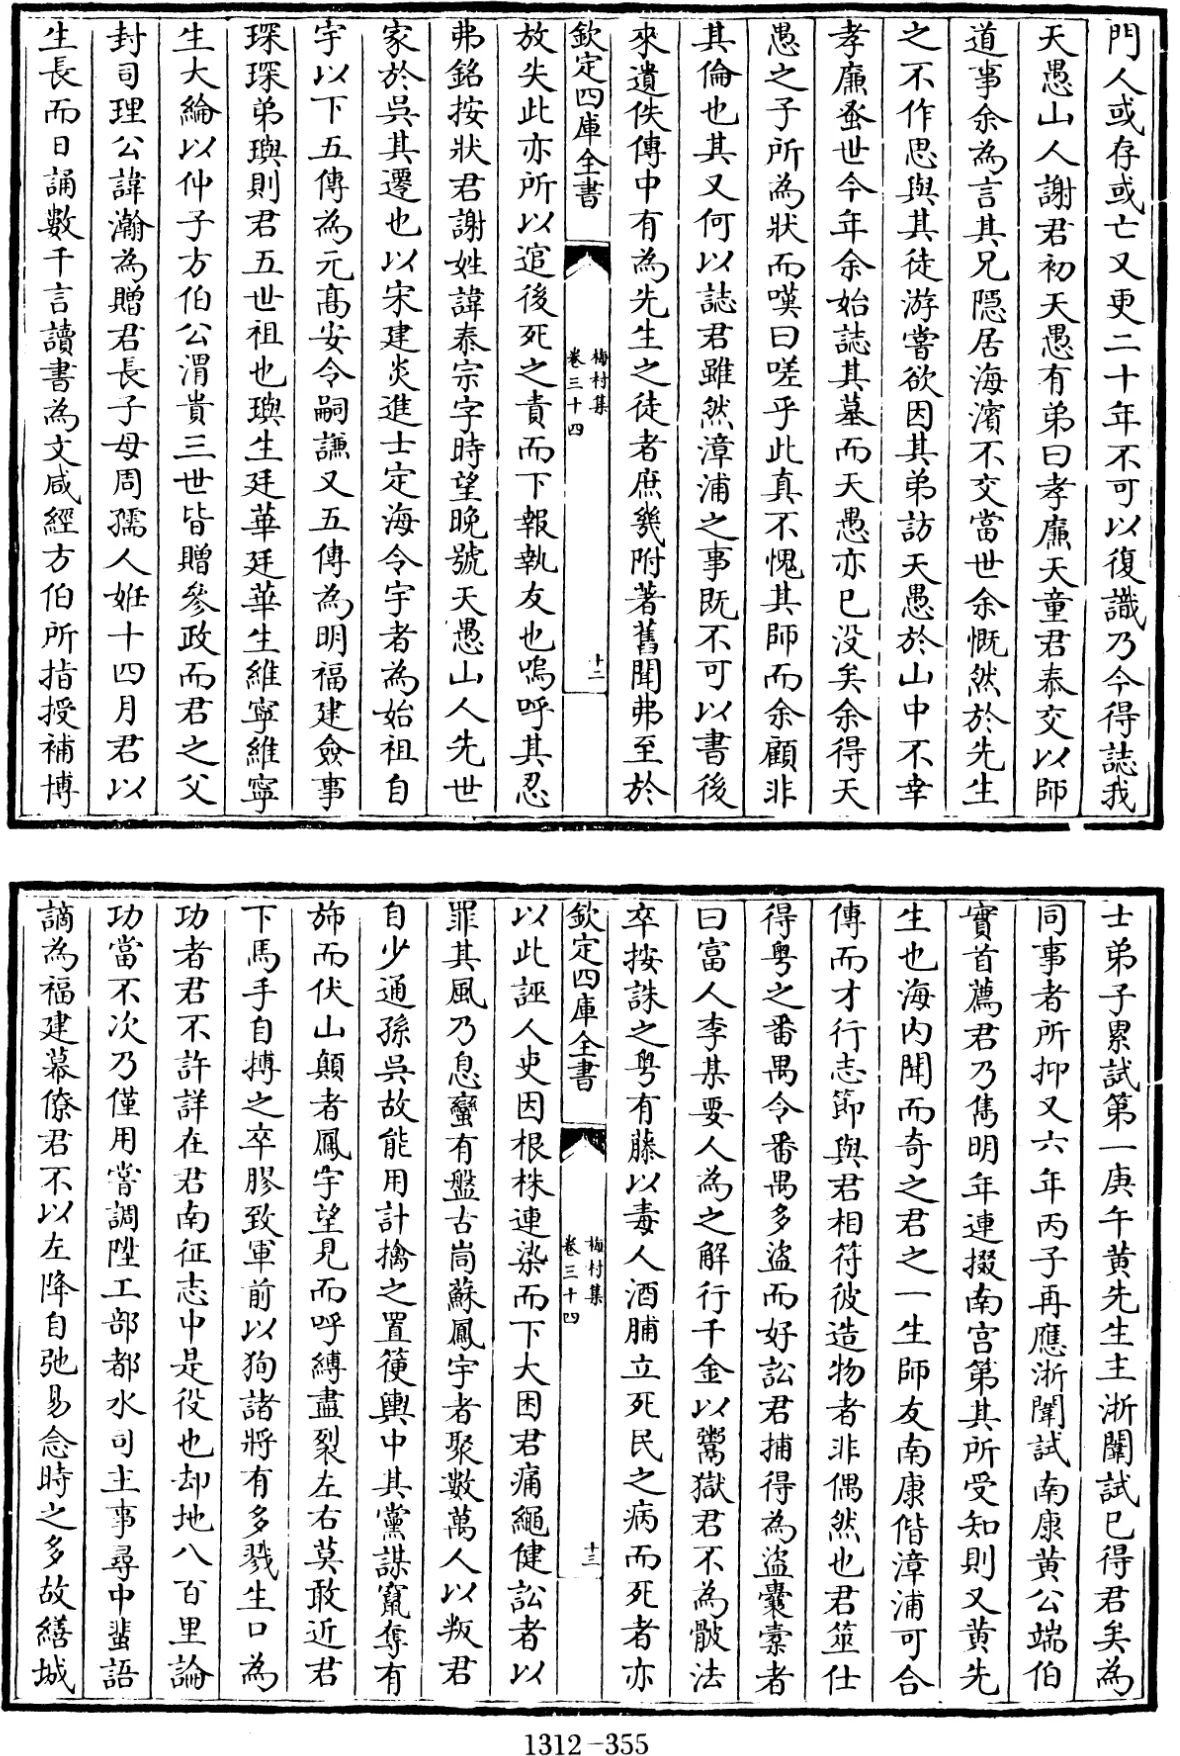 門人或存或亡又更二十年不可以復識乃今得誌我
天愚山人謝君初天愚有弟曰孝廉天童君泰交以師
道事余為言其兄隱居海濱不交當世余慨然於先生
之不作思與其徒游嘗欲因其弟訪天愚於山中不幸
孝廉蚤世今年余始誌其墓而天愚亦已没矣余得天
愚之子所為狀而嘆曰嗟乎此真不愧其師而余顧非
其倫也其又何以誌君雖然漳浦之事既不可以書後
來遺佚傳中有為先生之徒者庶幾附著舊聞弗至於
欽定四庫全書
梅村集
卷三十四
十二
放失此亦所以逭後死之責而下報執友也嗚呼其忍
弗銘按狀君謝姓諱泰宗字時望晚號天愚山人先世
家於吳其遷也以宋建炎進士定海令宇者為始祖自
宇以下五傳為元髙安令嗣謙又五傳為明福建僉事
琛琛弟璵則君五世祖也璵生廷華廷華生維寧維寧
生大綸以仲子方伯公渭貴三世皆贈參政而君之父
封司理公諱瀚為贈君長子母周孺人姙十四月君以
生長而日誦數千言讀書為文咸經方伯所指授補博
士弟子累試第一庚午黄先生主浙闈試已得君矣為
同事者所抑又六年丙子再應浙闈試南康黄公端伯
實首薦君乃雋明年連掇南宫第其所受知則又黄先
生也海内聞而奇之君之一生師友南康偕漳浦可合
傳而才行志節與君相符彼造物者非偶然也君筮仕
得粤之番禺令番禺多盗而好訟君捕得為盗囊橐者
曰富人李某要人為之解行千金以鬻獄君不為骫法
卒按誅之粤有藤以毒人酒脯立死民之病而死者亦
欽定四庫全書
梅村集
卷三十四
十三
以此誣人吏因根株連染而下大困君痛繩健訟者以
罪其風乃息蠻有盤古峝蘇鳳宇者聚數萬人以叛君
自少通孫吳故能用計擒之置箯輿中其黨謀竄奪有
斾而伏山顛者鳳宇望見而呼縛盡裂左右莫敢近君
下馬手自搏之卒膠致軍前以狥諸將有多戮生口為
功者君不許詳在君南征志中是役也却地八百里論
功當不次乃僅用常調陞工部都水司主事尋中蜚語
謫為福建幕僚君不以左降自弛易念時之多故繕城
1312-355